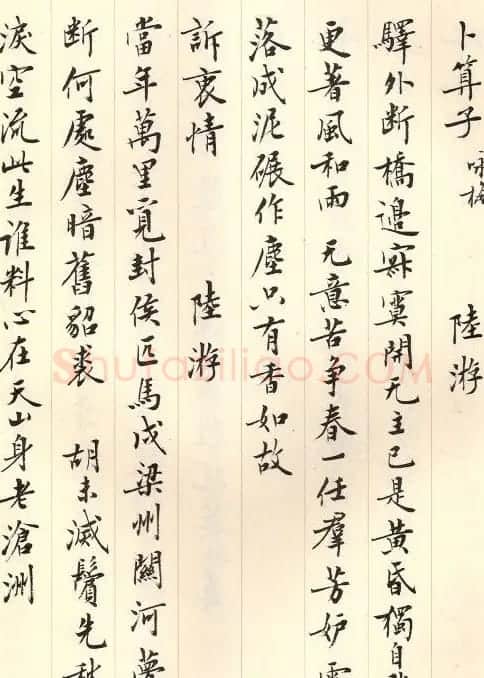 卜算子 咏梅 陸游
驛外断橋邉寂寞開无主已是黄昏獨自
更著風和雨 无意苦争春一任羣芳妒
落成泥碾作塵只有香如故
訴衷情 陸游
當年萬里覓封侯匹馬戍梁州關河夢
断何處塵暗舊貂裘 胡未滅鬢先秋
淚空流此生誰料心在天山身老滄洲
Shufaziliao.COM